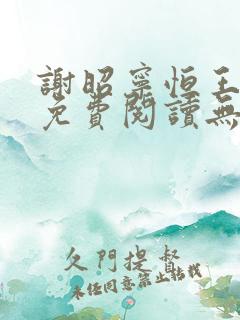 謝昭寧恒王
免費閱讀無
久門提督
未經同意禁止轉載